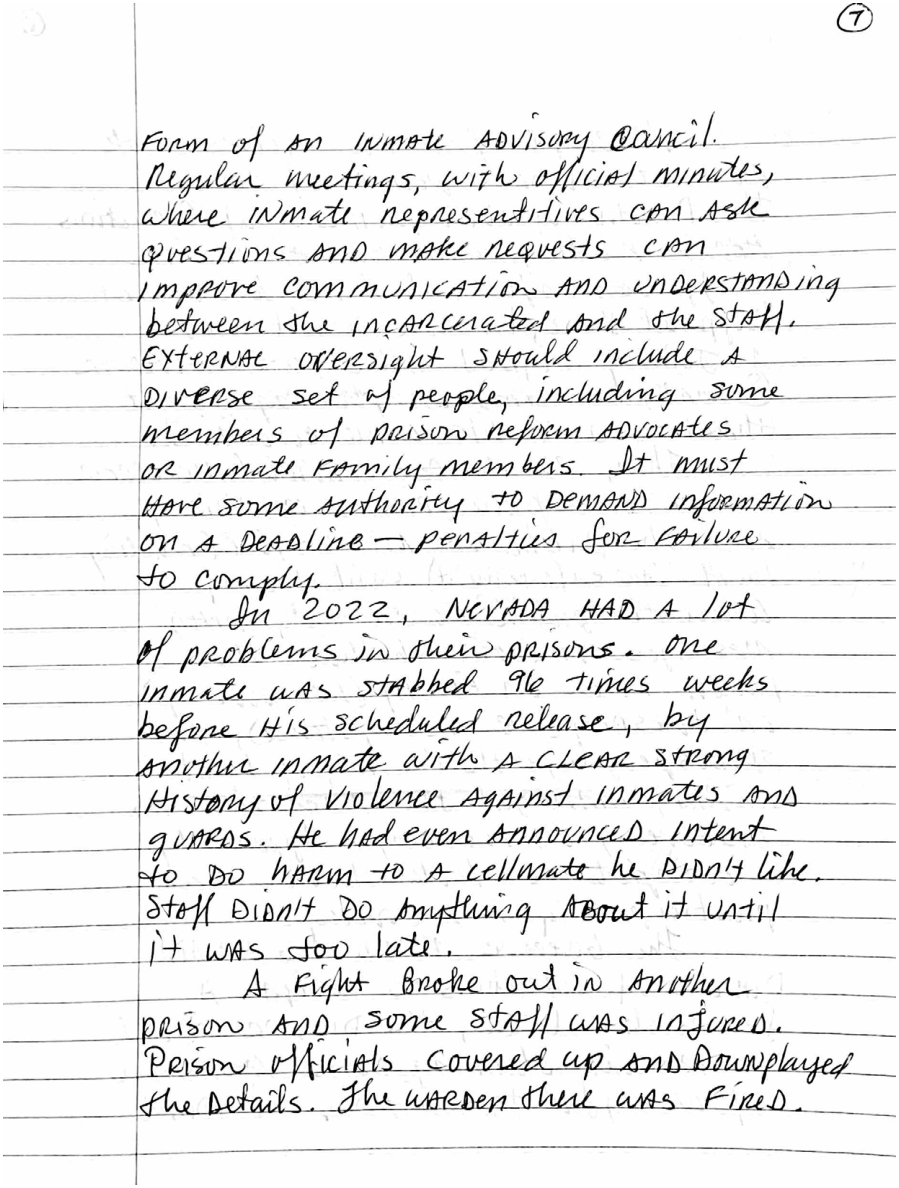 7
Form of an inmate advisory council.
Regular meetings, with official minutes,
where inmate representitives can ask
questions and make requests can
improve communication and understanding
between the incarcerated and the staff.
External oversight should include a
diverse set of people, including some
members of prison reform advocates
or inmate family members. It must
have some authority to demand information
on a deadline — penalties for failure
to comply.
In 2022, Nevada had a lot
of problems in their prisons. One
inmate was stabbed 96 times weeks
before his scheduled release, by
another inmate with a clear strong
history of violence against inmates and
guards. He had even announced intent
to do harm to a cellmate he didn't like.
Staff didn't do anything about it until
it was too late.
A fight broke out in another
prison and some staff was injured.
Prison officials covered up and downplayed
the details. The warden there was fired.